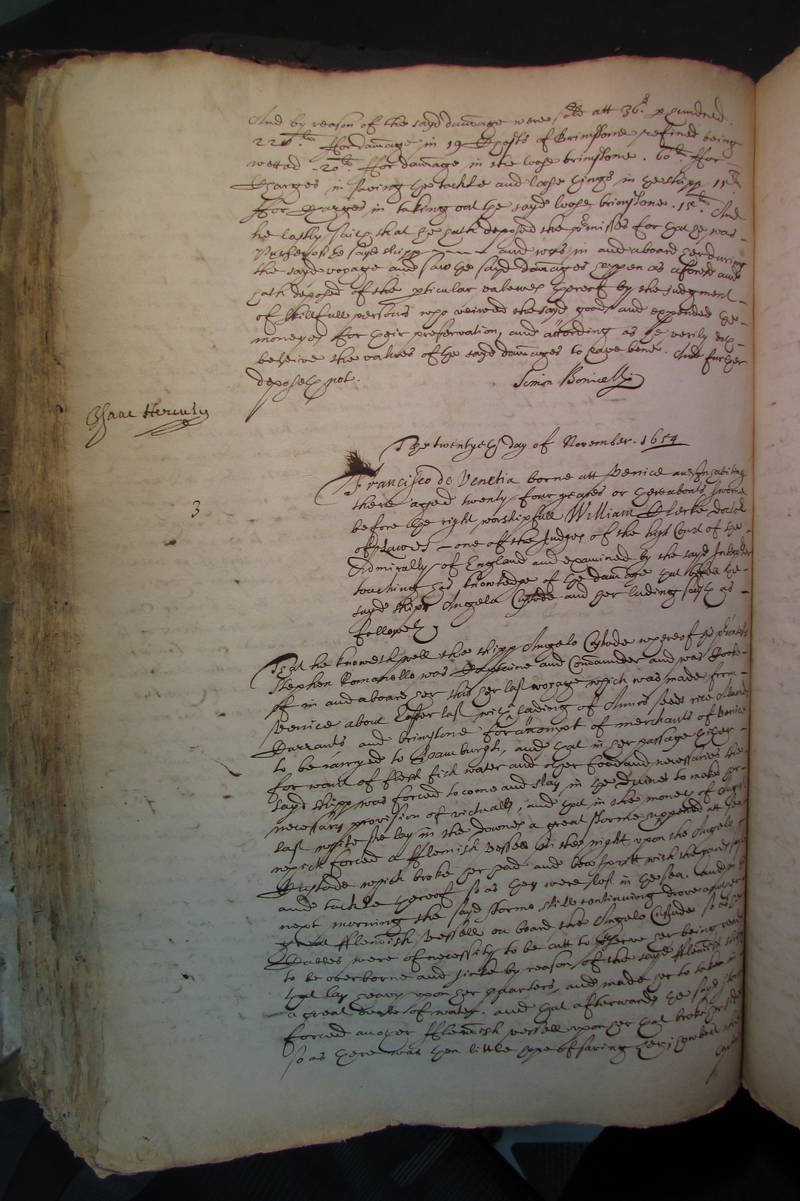 And by reason of the sayd dammage were sold att 36s p hundred.
22li. ffor dammage in 19 Chests of Brimstone refined being
wetted 20li. ffor dammage in the loose brimstone. 60li. ffor
Charges in saving the tackle and loose things in the shipp 15li
ffor Charges in taking out the sayd loose brimstone. 15li. And
he lastly saith that he hath deposed the premisses for that he was
Purser of the sayd shipp and was in and aboard her during
the sayd voyage and saw the sayd damages happen as aforesayd and
hath deposed of the pticular valewes thereof by the judgment
of skilfull persons who veiwed the sayd goods and expended the
moneyes for their preservation, and according as he verily
beleive the values of the sayd dammages to have bene. And further
deposeth not.
Simon Bonicelli
Isaac Hercules
The twentyeth day of November. 1654
3
Francisco de Venetia borne att Venice and Inhabiting
there aged twenty four yeares or thereabouts sworne
before the right worshipfull William Clerke doctor
of Lawes one of the Judges of the high Court of the
Admiralty of England and examined by the sayd
touching his knowledge of the dammage that the
sayd shipp Angelo Custode and her lading saith as
followeth
That he knoweth well the shipp Angelo Custode whereof
Stephen Romanello was Captaine and Commander and was
of in and aboard her this her last voyage which was made from
Venice about last with lading of Annis seeds rice Almonds
Currants and brimstone for accompt of merchants of Venice
to be carryed to Hamburgh, and that in her passage thither
for want of fresh water and other food and necessaries the
sayd shipp was forced to come and stay in the Downes to make
necessary provision of victualls, and that in the moneth of
last while she lay in the downes a great storme happened
which forced a fflemish vessell in the night upon the Angelo
Custode which broke her head and bow spritt with the
and tackle thereof so as they were lost in the sea. And
next morning the sayd storme still continuing drove another
great fflemish vessell on board the Angelo Custode so as
Cables were of necessity to be cutt to preserve her being ready
to be oberborne and sinke by reason of the sayd fflemish
that lay heavy upon her quarters, and made her to take in
a great deale of water. and that afterwards the sayd storme
forced another fflemish vessell upon her that broke her
so as there was then little hope of saving her,